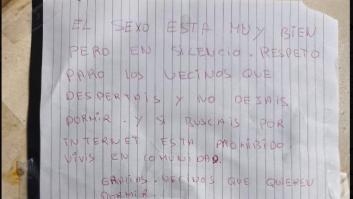 EL SEXO ESTA MUY BIEN
PERO EN SILENCIO. RESPETO
PARO LOS VECINOS QUE
DESPERTAIS Y NO DEJAIS
DORMIR. Y SI BUSCAIS POR
INTERNET ESTA PROHIBIDO
VIVIS EN COMUNIDAD.
GRACIAS. VECINOS QUE QUIEREN
DORMIR